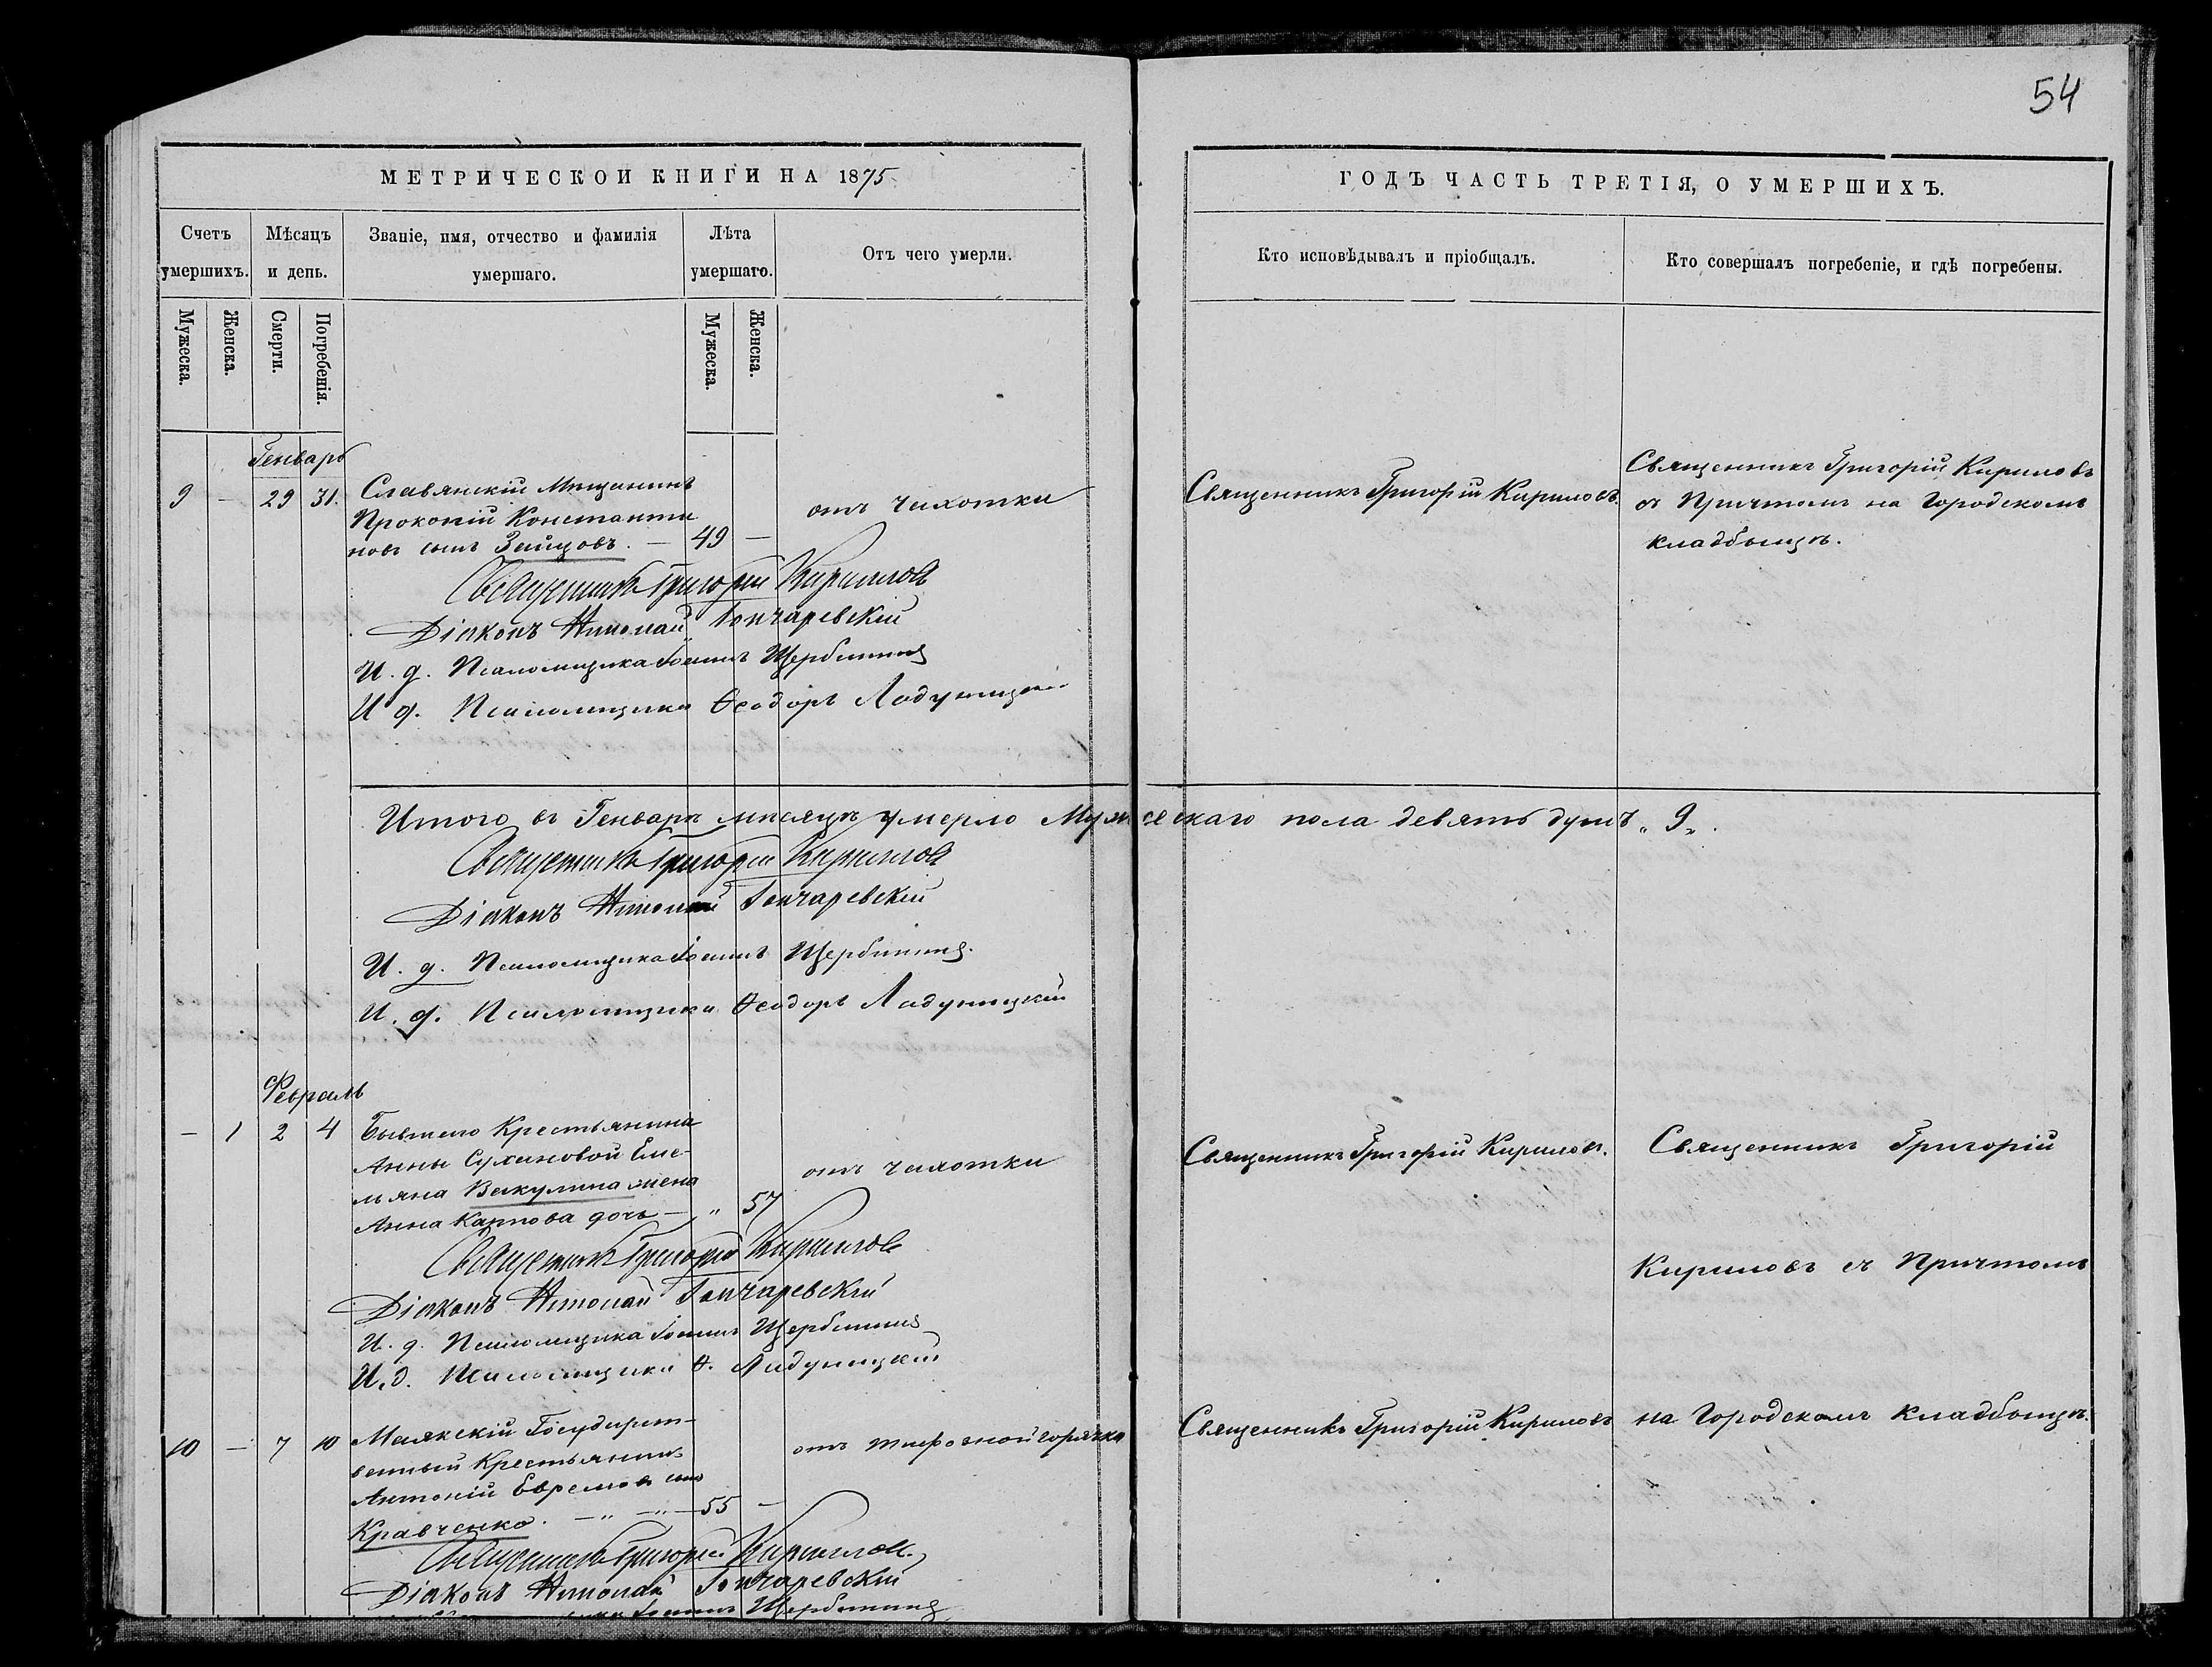 54
МЕТРИЧЕСКОЙ КНИГИ НА 1875
ГОДЪ ЧАСТЬ ТРЕТІЯ, О УМЕРШИХЪ.
Счетъ умершихъ.
Мѣсяцъ и день.
Званіе, имя, отчество и фамилія умершаго.
Лѣта умершаго.
Отъ чего умерли.
Кто исповѣдывалъ и пріобщалъ.
Кто совершалъ погребеніе, и гдѣ погребены.
Мужеска.
Женска.
Смерти.
Погребенія.
Мужеска.
Женска.
Генварь
9 – 29 31.
Славянскій Мѣщанинъ
Прокопій Константи
новъ сынъ Зайцовъ. — 49 —
отъ чахотки
Священникъ Григорій Кириловъ.
Священникъ Григорій Кириловъ
съ Причтомъ на Городскомъ
кладбыщѣ.
Священникъ Григорій Кирилловъ
Діаконъ Николай Гончаревскій
И. д. Псаломщика Іоаннъ Щербинин
И д. Псаломщика Ѳеодоръ Ладуницкий
Итого въ Генварѣ мѣсяцѣ умерло Мужескаго пола девять душъ „9„.
Священникъ Григорій Кирилловъ
Діаконъ Николай Гончаревскій
И. д. Псаломщика Іоаннъ Щербинин.
И. д. Псаломщика Ѳеодоръ Ладуницкий
Февраль
– 1 2 4
Бывшего Крестьянина
Анны Сухановой Еме-
льяна Вакулина жена
Анна Карпова дочь — „ 57
отъ чахотки
Священникъ Григорій Кириловъ.
Священникъ Григорій
Кириловъ съ Причтомъ
на Городскомъ кладбыщѣ.
Священникъ Григорій Кирилловъ
Діаконъ Николай Гончаревскій
И. д. Псаломщика Іоаннъ Щербинин
И. д. Псаломщика Ѳ. Ладуницкий
10 – 7 10
Маякскій Государст-
венный Крестьянинъ
Антоній Ефремовъ сынъ
Кравченко. — „ — „ — 55 —
отъ тифозной горячки
Священникъ Григорій Кириловъ
Священникъ Григорій Кирилловъ.
Діаконъ Николай Гончаревскій
Іоаннъ Щербинин